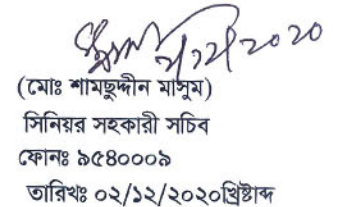 ২/১২/২০২০
(মোঃ শামছুদ্দীন মাসুম)
সিনিয়র সহকারী সচিব
ফোনঃ ৯৫৪০০০৯
তারিখঃ ০২/১২/২০২০খ্রিষ্টাব্দ